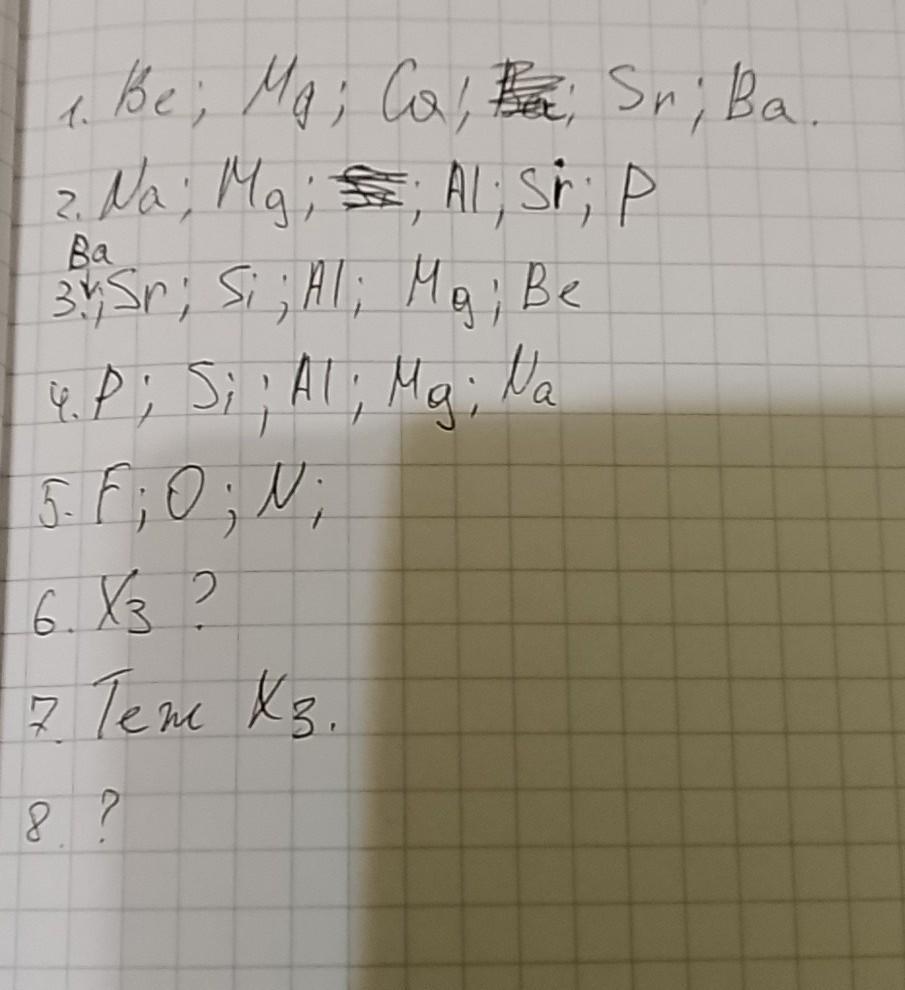 1. Be; Mg; Ca; ; Sr; Ba.
2. Na; Mg; ; Al; Si; P
Ba
3. ; Sr; Si; Al; Mg; Be
4. P; Si; Al; Mg; Na
5. F; O; N;
6. X3 ?
7. Теж X3.
8. ?